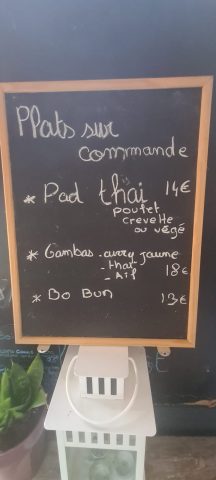 Plats sur
commande
* Pad thai 14€
poulet
crevette
ou végé
* Gambas - curry jaune
- thai
- Ail 18€
* Bo Bun 13€